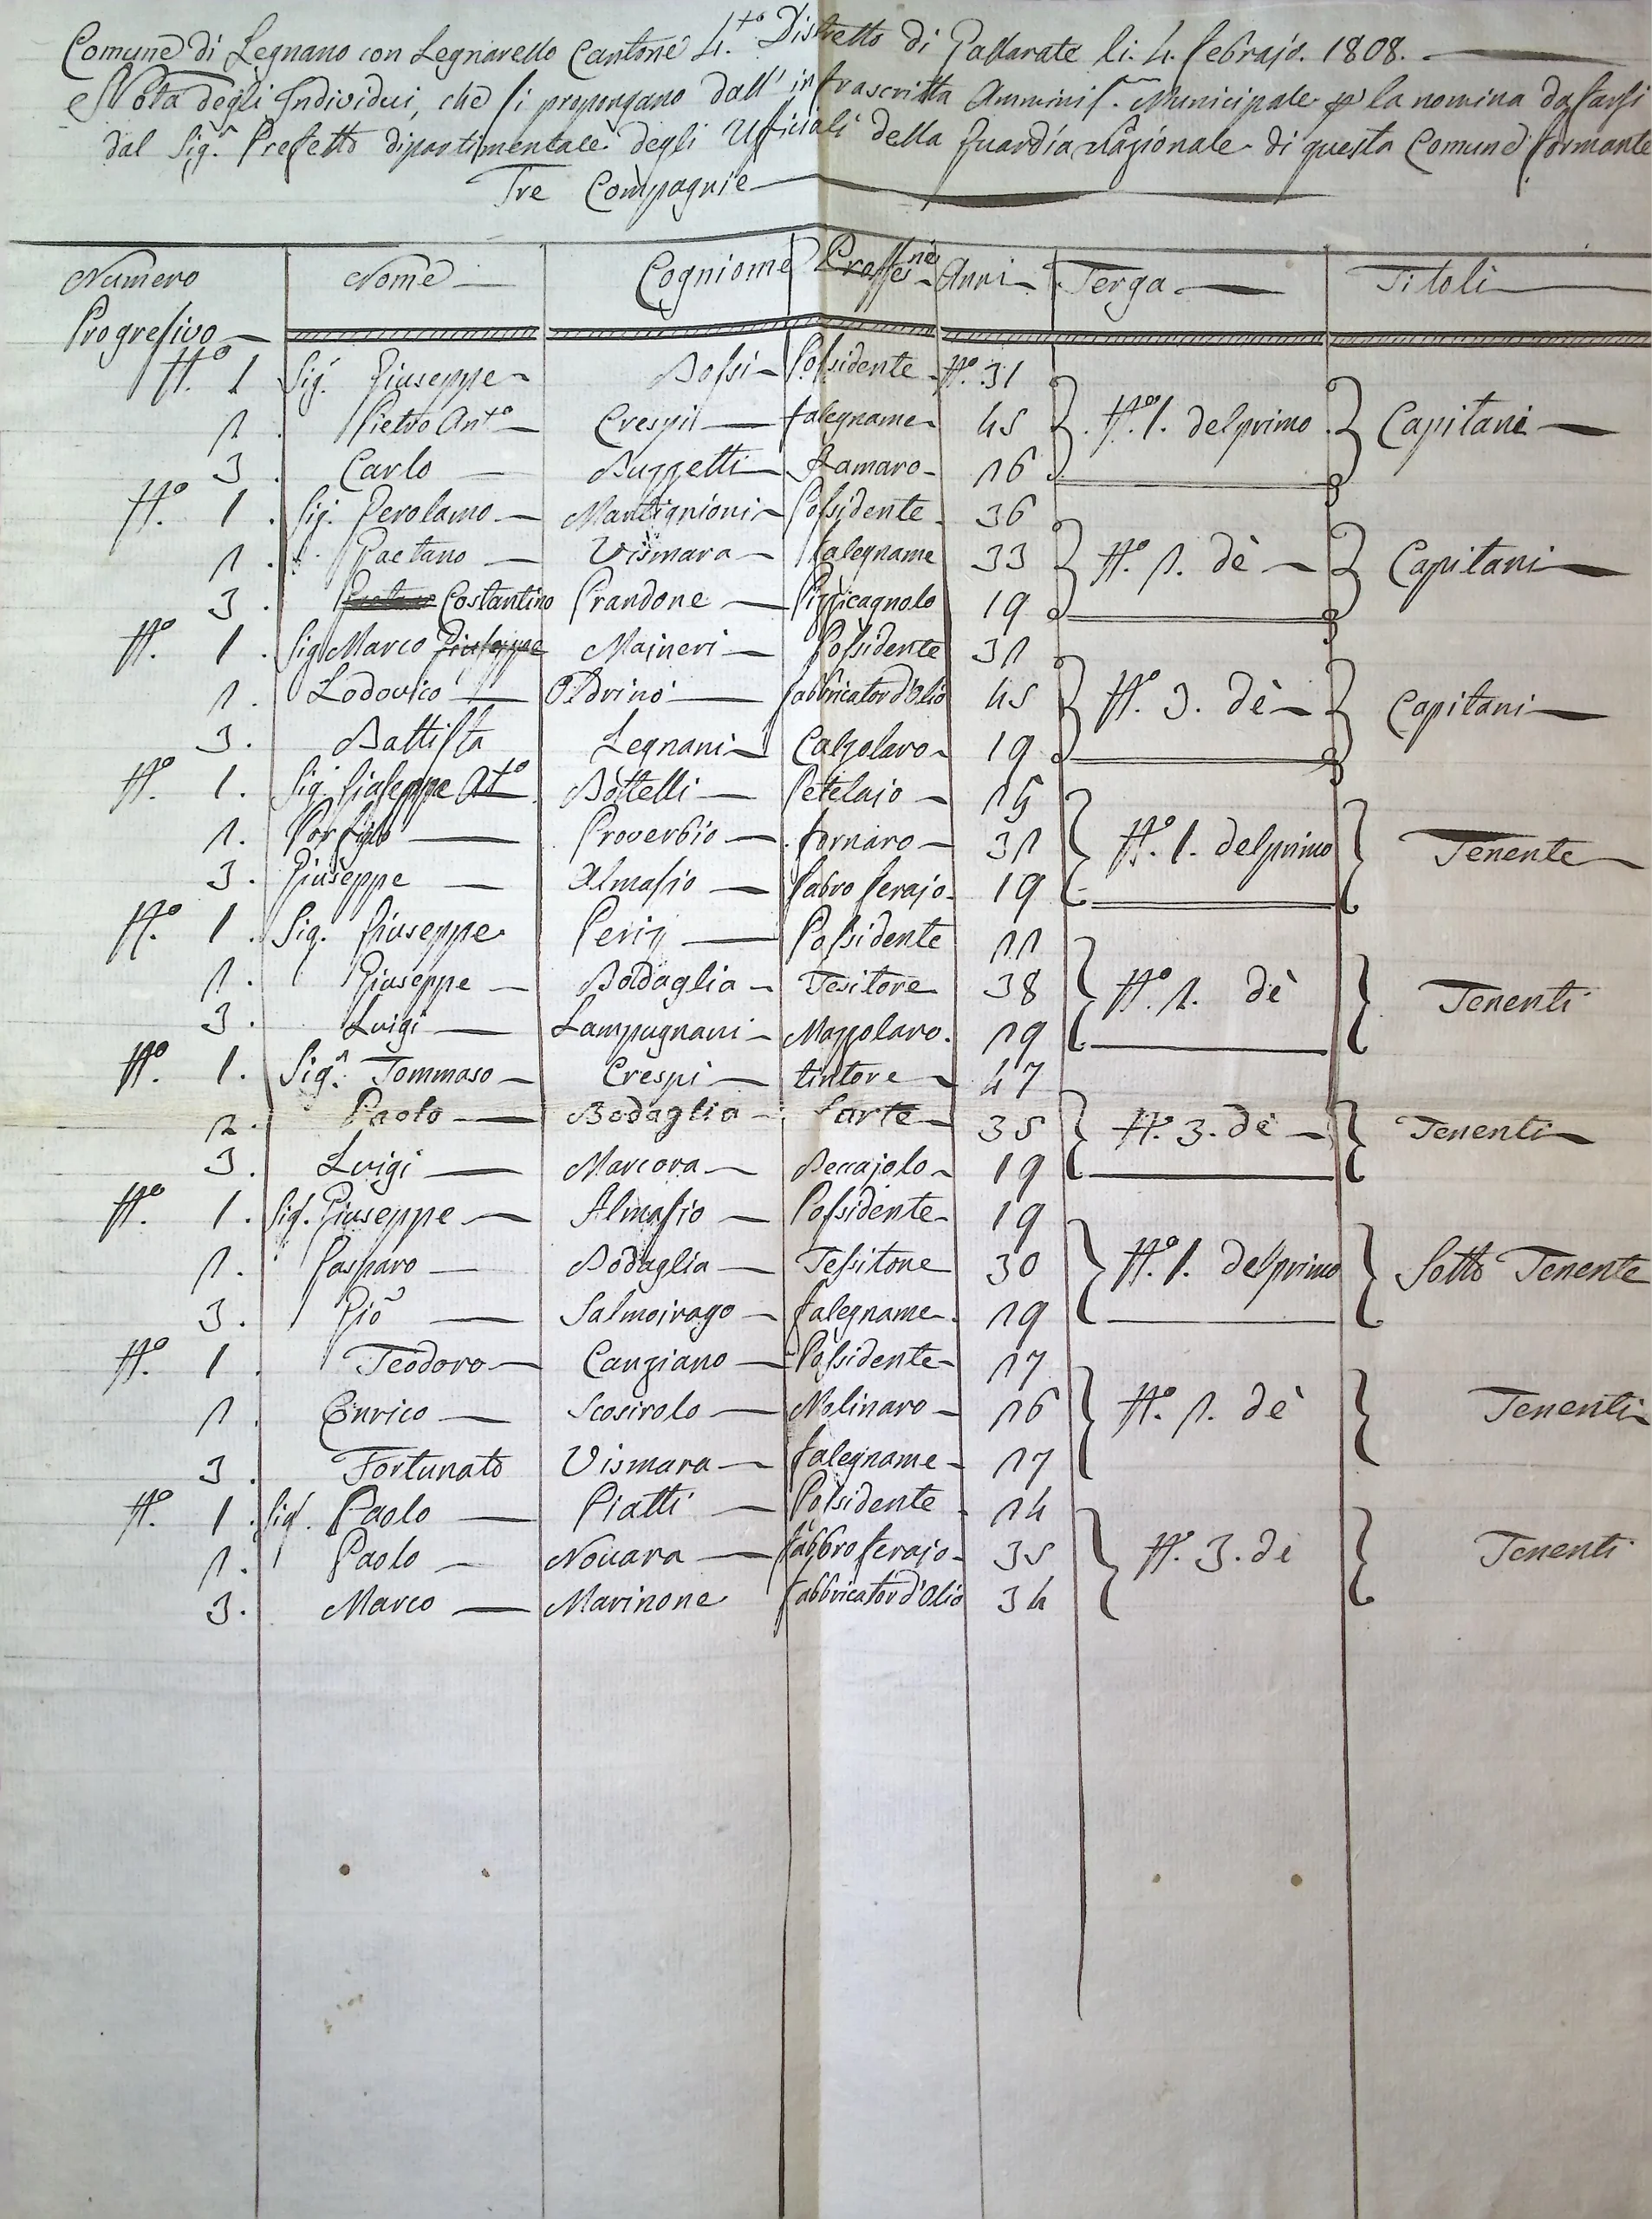 Comune di Legnano con Legnarello Cantone 4.to Distretto di Gallarate li. 4. Febrajo. 1808.
Nota degli Individui, che si propongano dall' infrascritta Amminis. Municipale per la nomina da farsi
dal Sig. Prefetto dipartimentale degli Ufficiali della Guardia Nazionale di questa Comune formante
Tre Compagnie
Numero Progresivo Nome Cogniome Proffesne Anni Terga Titoli
N.o 1 Sig. Giuseppe Bossi Possidente N.o 31
2. Pietro Anto Crespi falegname 45 N.o 1. del primo Capitani
3. Carlo Buzzetti Ramaro 26
N.o 1. Sig. Gerolamo Mantignioni Possidente 36
2. Gaetano Vismara falegname 33 N.o 2. dè Capitani
3. Costantino Grandone Pizzicagnolo 29
N.o 1. Sig Marco Giuseppe Majneri Possidente 32
2. Lodovico Oldrino fabbricator d'Olio 45 N.o 3. dè Capitani
3. Battista Legnani Calzolaro 29
N.o 1. Sig. Giuseppe Ato Bottelli Petelajo 25
2. Porfiglo Proverbio fornaro 32 N.o 1. del primo Tenente
3. Giuseppe Almasio fabro ferajo 29
N.o 1. Sig. Giuseppe Possidente 22
2. Giuseppe Boldaglia Tesitore 38 N.o 2. dè Tenenti
3. Luigi Lampugnani Mazzolaro. 29
N.o 1. Sig. Tommaso Crespi tintore 47
2. Paolo Bodaglia Sarte 35 N. 3. de Tenenti
3. Luigi Marcora 29
N.o 1. Sig. Giuseppe Almasio Possidente 29
2. Gasparo Bodaglia Tessitore 30 N.o 1. del primo Sotto Tenente
3. Pio Salmoirago falegname. 29
N.o 1. Teodoro Canziano Possidente 27
2. Enrico Scosirolo Molinaro 26 N.o 2. dè Tenenti
3. Fortunato Vismara falegname 27
N.o 1. Sig. Paolo Piatti Possidente 24
2. Paolo Novara fabbro ferajo 35 N. 3. de Tenenti
3. Marco Marinone fabbricator d'Olio 34